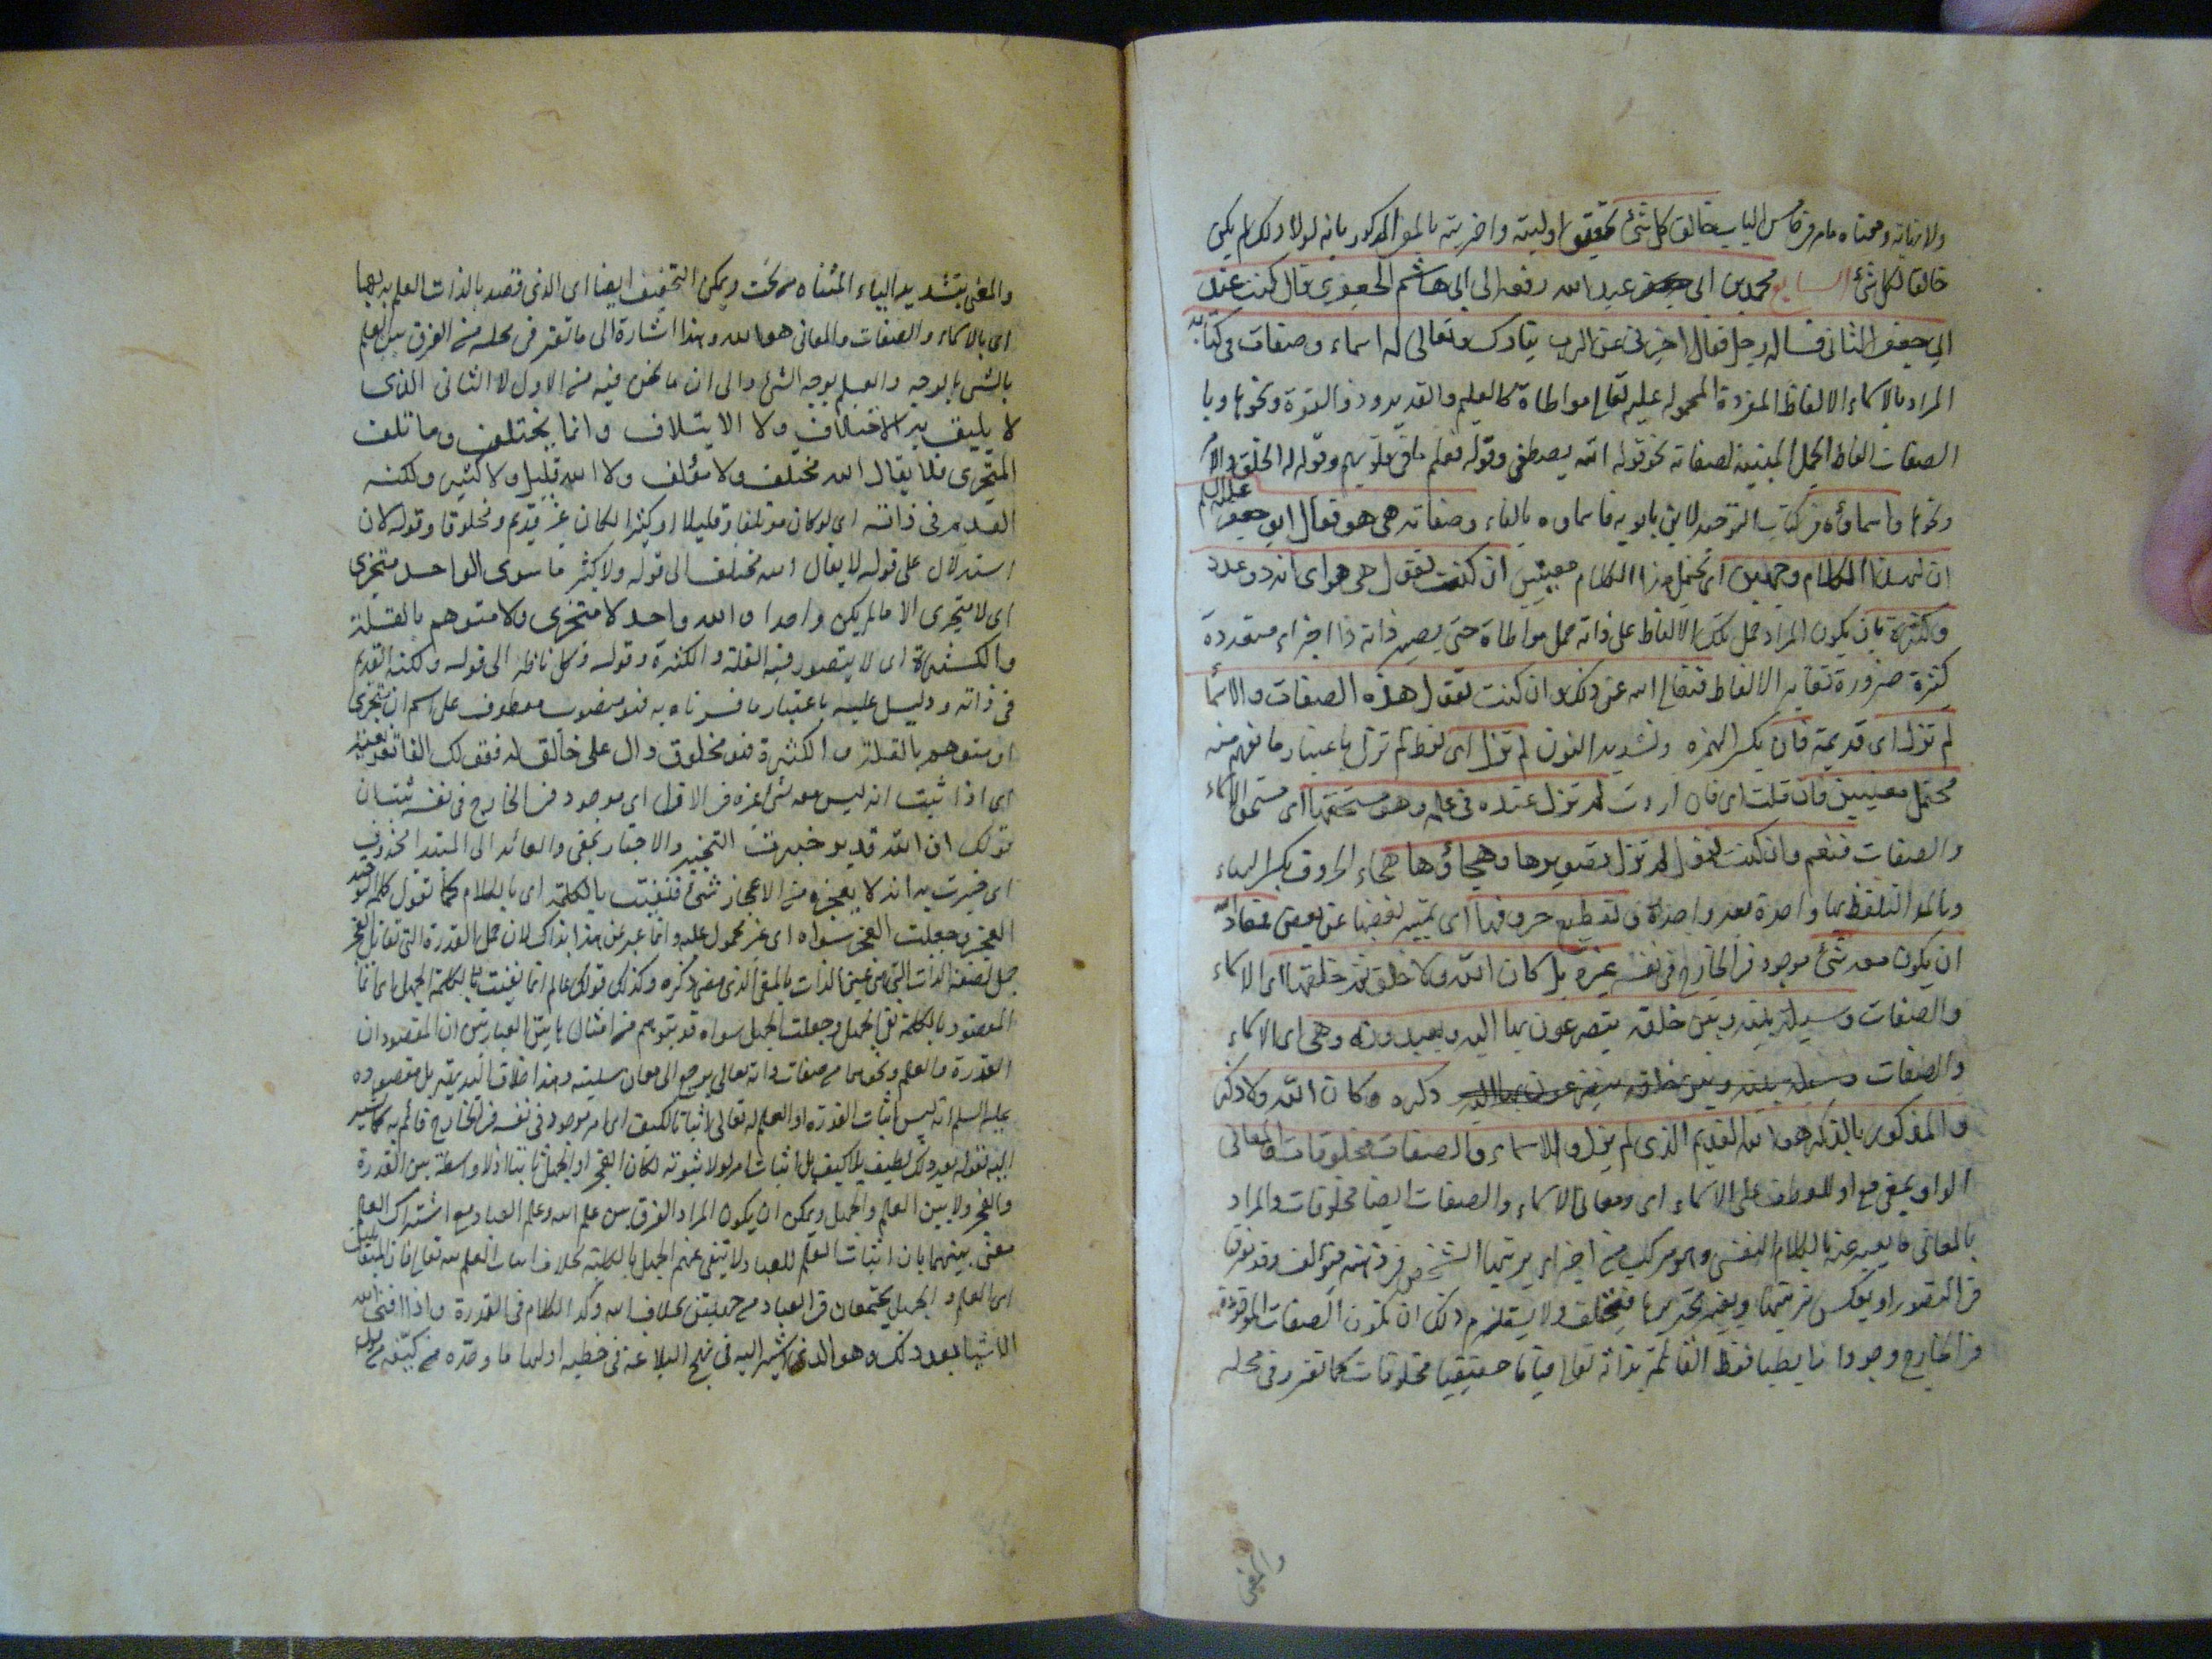 ولا نهاية ومعناه ما مر في خامس الباب خالق كل شئ تحقيق اوليته واخريته بالمعنى المذكور بانه لولا ذلك لم يكن
خالقا لكل شئ السابع محمد بن ابي عبد الله رفعه الى ابي هاشم الجعفري قال كنت عند
ابي جعفر الثاني فساله رجل فقال اخبرني عن الرب تبارك وتعالى له اسماء وصفات في كتابه
المراد بالاسماء الالفاظ المفردة المحمولة عليه تعالى مواطاة كالعليم والقدير وذو القوة ونحوها وبا
الصفات الفاظ الجمل المبينة لصفاته نحو قوله الله يصطفي وقوله فعلم ما في قلوبهم وقوله له الخلق والامر
ونحوها واسماؤه في كتاب التوحيد لابن بابويه فاسماؤه بالفاء وصفاته هي هو فقال ابو جعفر عليه السلم
ان لهذا الكلام وجهين اي يحتمل هذا الكلام معنيين ان كنت تقول هي هو اي انه ذو عدد
وكثرة بان يكون المراد حمل تلك الالفاظ على ذاته حمل مواطاة حتى يصير ذاته ذا اجزاء متعددة
كثيرة ضرورة تغاير الالفاظ فتعالى الله عن ذلك وان كنت تقول هذه الصفات والاسماء
لم تزل اي قديمة فان بكسر الهمزة وتشديد النون لم تزل اي لفظ لم تزل باعتبار ما نفهم منه
محتمل معنيين فان قلت اي فان اردت لم تزل عنده في علمه وهو مستحقها اي مستحق الاسماء
والصفات فنعم وان كنت تقول لم تزل تصويرها وهجاؤها هجاء الحروف بكسر الهاء
وبالمد التلفظ بها واحدة بعد واحدة وتقطيع حروفها اي تمييز بعضها عن بعض فمعاذ الله
ان يكون معه شئ موجود في الخارج في نفسه غيره بل كان الله ولا خلق ثم خلقها اي الاسماء
والصفات وسيلة بينه وبين خلقه يتضرعون بها اليه ويعبدونه وهي اي الاسماء
والصفات وسيلة بينه وبين خلقه يتضرعون بها اليه ذكره وكان الله ولا ذكر
والمذكور بالذكر هو الله القديم الذي لم يزل والاسماء والصفات مخلوقات والمعاني
الواو بمعنى مع او للعطف على الاسماء اي ومعاني الاسماء والصفات ايضا مخلوقات والمراد
بالمعاني ما يعبر عنه بالكلام النفسي وهو مركب من اجزاء يرتبها الشخص في ذهنه فيؤلف وقد يفرقها
في التصور او يعكس ترتيبها ويغير تحديدها فيختلف ولا يستلزم ذلك ان تكون الصفات الموجودة
في الخارج وجودا رابطيا فقط القائمة بذاته تعالى قياما حقيقيا مخلوقات كما تقرر في محله
والمعنى
والمعنى بتشديد الياء المثناة من تحت ويمكن التخفيف ايضا اي الذي قصد بالذات العلم به بها
اي بالاسماء والصفات والمعاني هو الله وهذا اشارة الى ما تقرر في محله من الفرق بين العلم
بالشئ بالوجه والعلم بوجه الشئ والى ان ما نحن فيه من الاول لا الثاني الذي
لا يليق به الاختلاف ولا الايتلاف وانما يختلف وماتلف
المتجزي فلا يقال الله مختلف ولا مؤلف ولا الله قليل ولا كثير ولكنه
القديم في ذاته اي لو كان مؤتلفا وقليلا او كثيرا لكان غير قديم ومخلوقا وقوله لان
استدلال على قوله لا يقال الله مختلف الى قوله ولا كثير ما سوى الواحد متجزي
اي لا يتجزى الا ما لم يكن واحدا والله واحد لا متجزي ولا متوهم بالقلة
والكثرة اي لا يتصور فيه القلة والكثرة وقوله وكل ناظر الى قوله ولكنه القديم
في ذاته ودليل عليه باعتبار ما فسرناه به فهو منصوب معطوف على اسم ان متجزى
او متوهم بالقلة والكثرة فهو مخلوق دال على خالق له فقولك الفاء تفريعية
اي اذا ثبت انه ليس معه شئ غيره في الازل اي موجود في الخارج في نفسه ثبت ان
قولك ان الله قدير خبرت التخبير والاخبار بمعنى والعائد الى المبتدا محذوف
اي خبرت به انه لا يعجزه من الاعجاز شئ فنفيت بالكلمة اي بالكلام كما تقول كلمة التوحيد
العجز وجعلت العجز سواه اي غير محمول عليه وانما عبر عن هذا بذاك لان حمل القدرة التي تقابل العجز
حمل لصفة الذات التي هي عين الذات بالمعنى الذي مضى ذكره وكذلك قولك عالم انما نفيت بالكلمة الجهل اي انما
المقصود بالكلمة نفي الجهل وجعلت الجهل سواه قد يتوهم من امثال هاتين العبارتين ان المقصود ان
القدرة والعلم ونحوهما من صفات ذاته تعالى يرجع الى معان سلبية وهذا خلاف البديهة بل مقصوده
عليه السلم انه ليس اثبات القدرة او العلم له تعالى لاثبات الكيف اي امر موجود في نفسه في الخارج قائم به كما يشير
اليه بقوله بعد ذلك لطيف بلا كيف بل اثبات امر لولا ثبوته لكان العجز او الجهل ثابتا اذ لا واسطة بين القدرة
والعجز ولا بين العلم والجهل ويمكن ان يكون المراد الفرق بين علم الله وعلم العباد مع اشتراك العلم
معنى بينهما بان اثبات العلم للعباد لا ينفي عنهم الجهل بالكلية بخلاف اثبات العلم لله تعالى فان المتقابلين
اي العلم والجهل يجتمعان في العباد من جهتين بخلاف الله وكذا الكلام في القدرة واذا افنى الله
الاشياء بعد ذلك وهو الذي اشير اليه في نهج البلاغة في خطبه اولها ما وحده من كيفه من قوله